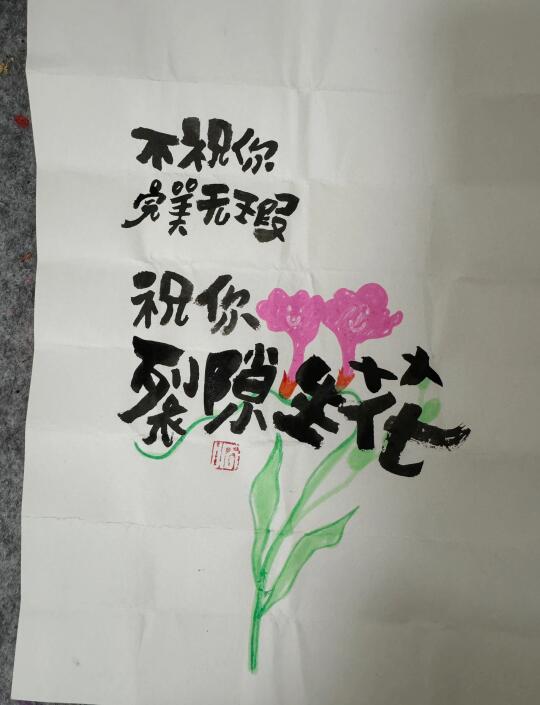 不祝你
完美无瑕
祝你
裂隙生花